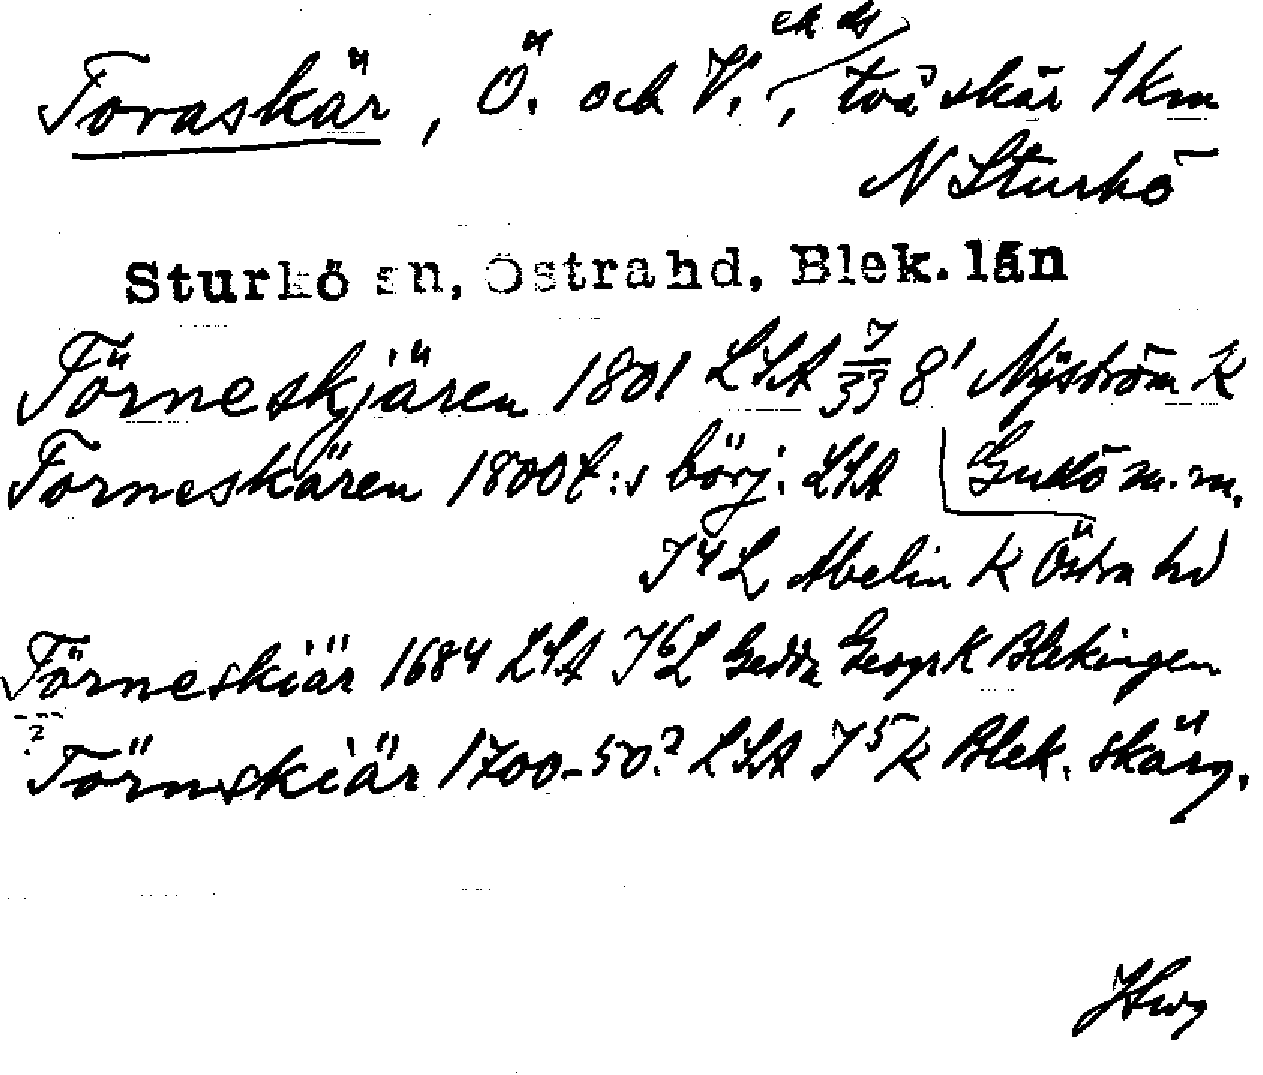 ek ds
Toraskär, Ö. och V. , två skär 1 km
N Sturkö
Sturkö sn, Östra hd, Blek. län
Törneskjären 1801 LSA 7/33 8' Nyström K
Torneskären 1800t:s börj. LSA Gullö m.m.
J4L Abelin K Östra hd
Törneskiär 1684 LSA J6L Gedda Geogr K Blekingen
?
Törnskiär 1700-50? LSA J5K Blek. skärg.